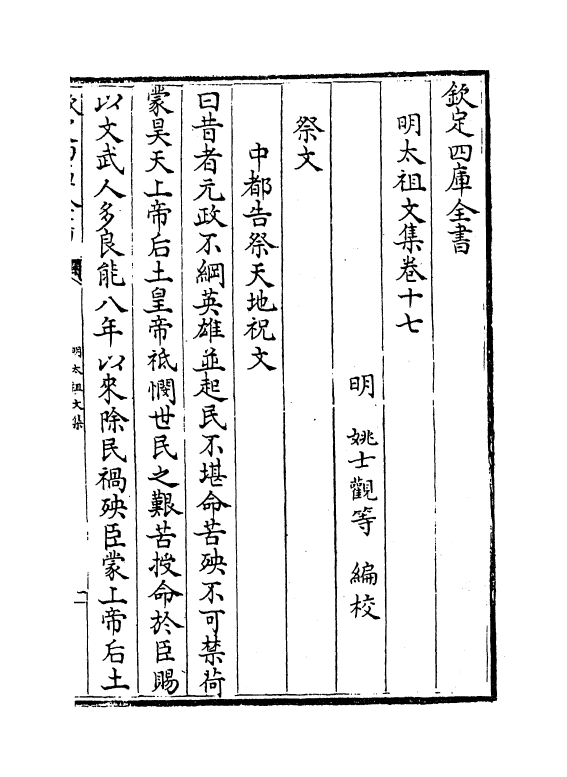 欽定四庫全書
明太祖文集卷十七
明 姚士觀等 編校
祭文
中都告祭天地祝文
曰昔者元政不綱英雄並起民不堪命苦殃不可禁荷
蒙昊天上帝后土皇帝祗憫世民之艱苦授命於臣賜
以文武人多良能八年以來除民禍殃臣蒙上帝后土
明太祖文集